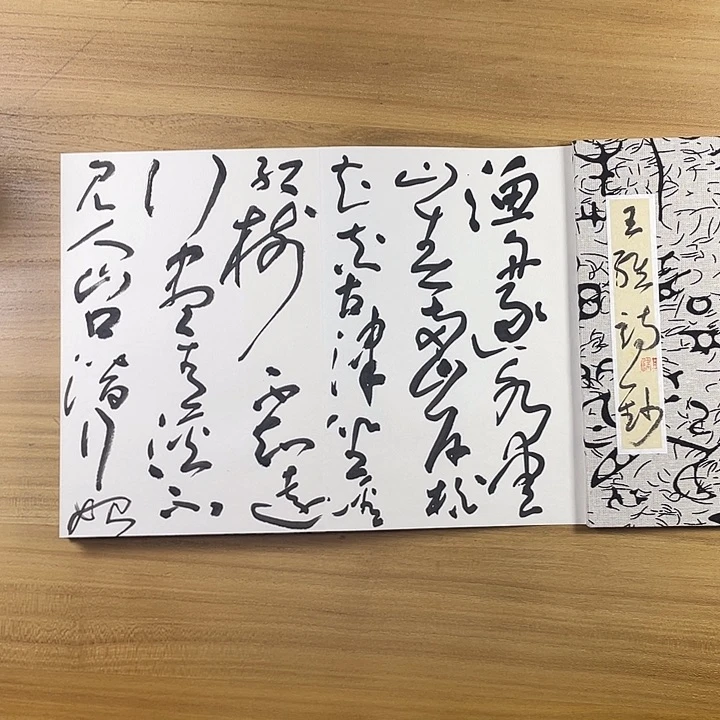 王維詩鈔
漁舟逐水愛
山春兩岸桃
花夾古津坐看
紅樹不知遠
行盡青溪不
見人山口潛行始